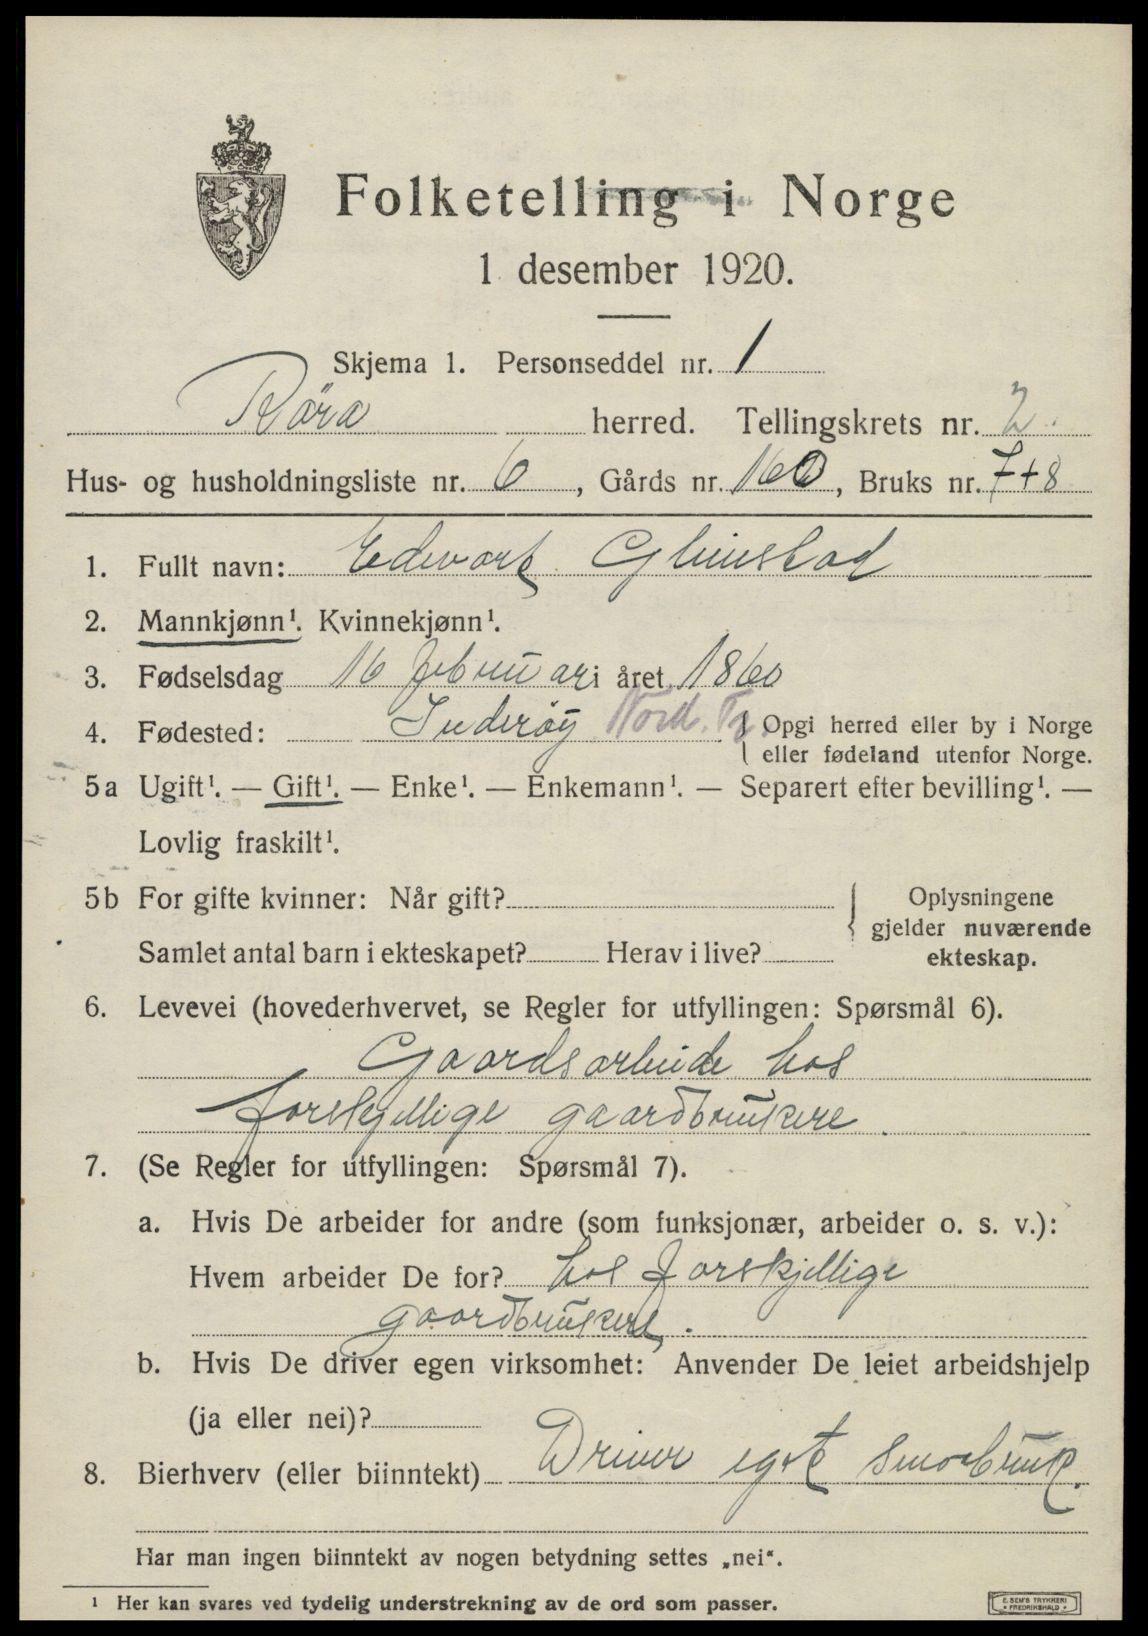 Folketelling i Norge
1 desember 1920.
Skjema 1. Personseddel nr. 1
Røra herred. Tellingskrets nr. 2.
Hus- og husholdningsliste nr. 6, Gårds nr. 160, Bruks nr. 7+8
1. Fullt navn: Edvart Glimstad
2. Mannkjønn¹. Kvinnekjønn¹.
3. Fødselsdag 16 februar i året 1860
4. Fødested: Inderøy Nord. Tr. Opgi herred eller by i Norge
eller fødeland utenfor Norge.
5a Ugift¹. — Gift¹. — Enke¹. — Enkemann¹. — Separert efter bevilling¹. —
Lovlig fraskilt¹.
5b For gifte kvinner: Når gift? Oplysningene
gjelder nuværende
Samlet antal barn i ekteskapet? Herav i live? ekteskap.
6. Levevei (hovederhvervet, se Regler for utfyllingen: Spørsmål 6).
Gaardsarbeide hos
forskjellige gaardbrukere.
7. (Se Regler for utfyllingen: Spørsmål 7).
a. Hvis De arbeider for andre (som funksjonær, arbeider o. s. v.):
Hvem arbeider De for? hos forskjellige
gaardbrukere.
b. Hvis De driver egen virksomhet: Anvender De leiet arbeidshjelp
(ja eller nei)?
8. Bierhverv (eller biinntekt) Driver eget smaabruk.
Har man ingen biinntekt av nogen betydning settes „nei“.
¹ Her kan svares ved tydelig understrekning av de ord som passer.
E. SEM'S TRYKKERI
• FREDRIKSHALD •